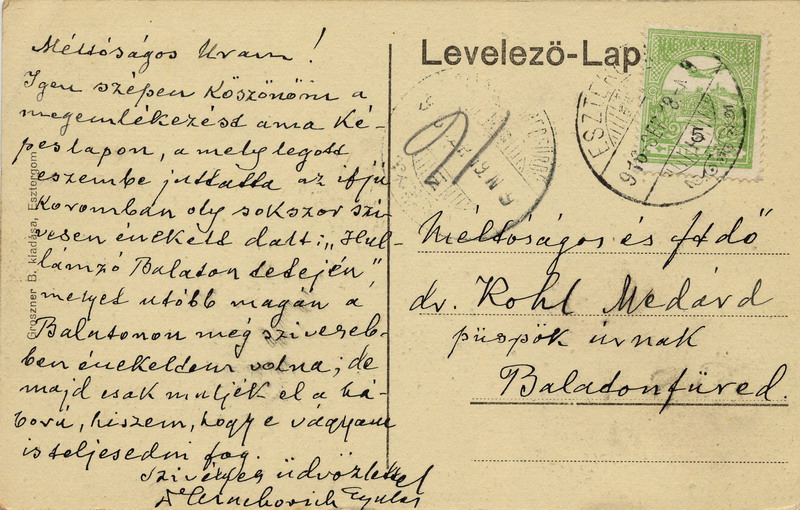 Méltóságos Uram!
Igen szépen köszönöm a
megemlékezést ama Ké-
peslapon, a mely legott
eszembe juttatta az ifjú
koromban oly sokszor szi-
vesen énekelt dalt: „Hul-
lámzó Balaton tetején”
melyet utóbb magán a
Balatonon még sziveseb-
ben énekeltem volna; de
majd csak muljék el a há-
ború, hiszem, hogy e vágyam
is teljesedni fog.
Szivélyes üdvözlettel
Gyula
Groszner B. kiadása, Esztergom
Levelező-Lap
MAGYAR KIR. POSTA
5
ESZTERGOM
Méltóságos és Ftdő
dr. Kohl Medárd
püspök úrnak
Balatonfüred.